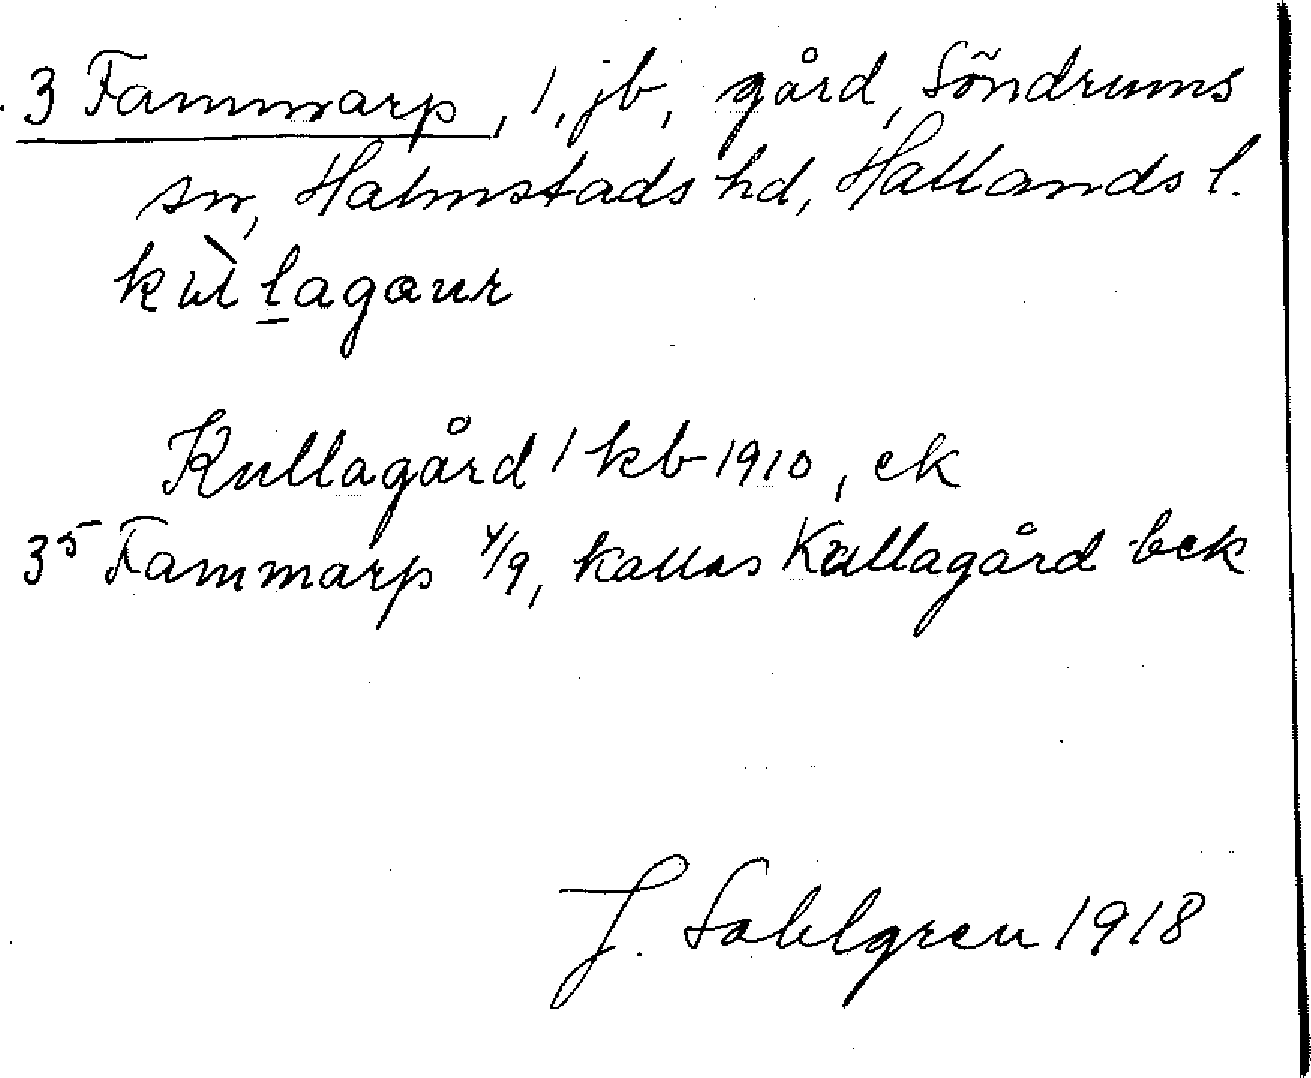 3 Fammarp, 1, jb, gård, Söndrums
sn, Halmstads hd, Hallands l.
Kullagård 1 kb 1910, ek
3⁵ Fammarp 4/9, kallas Kullagård bek
J. Sahlgren 1918